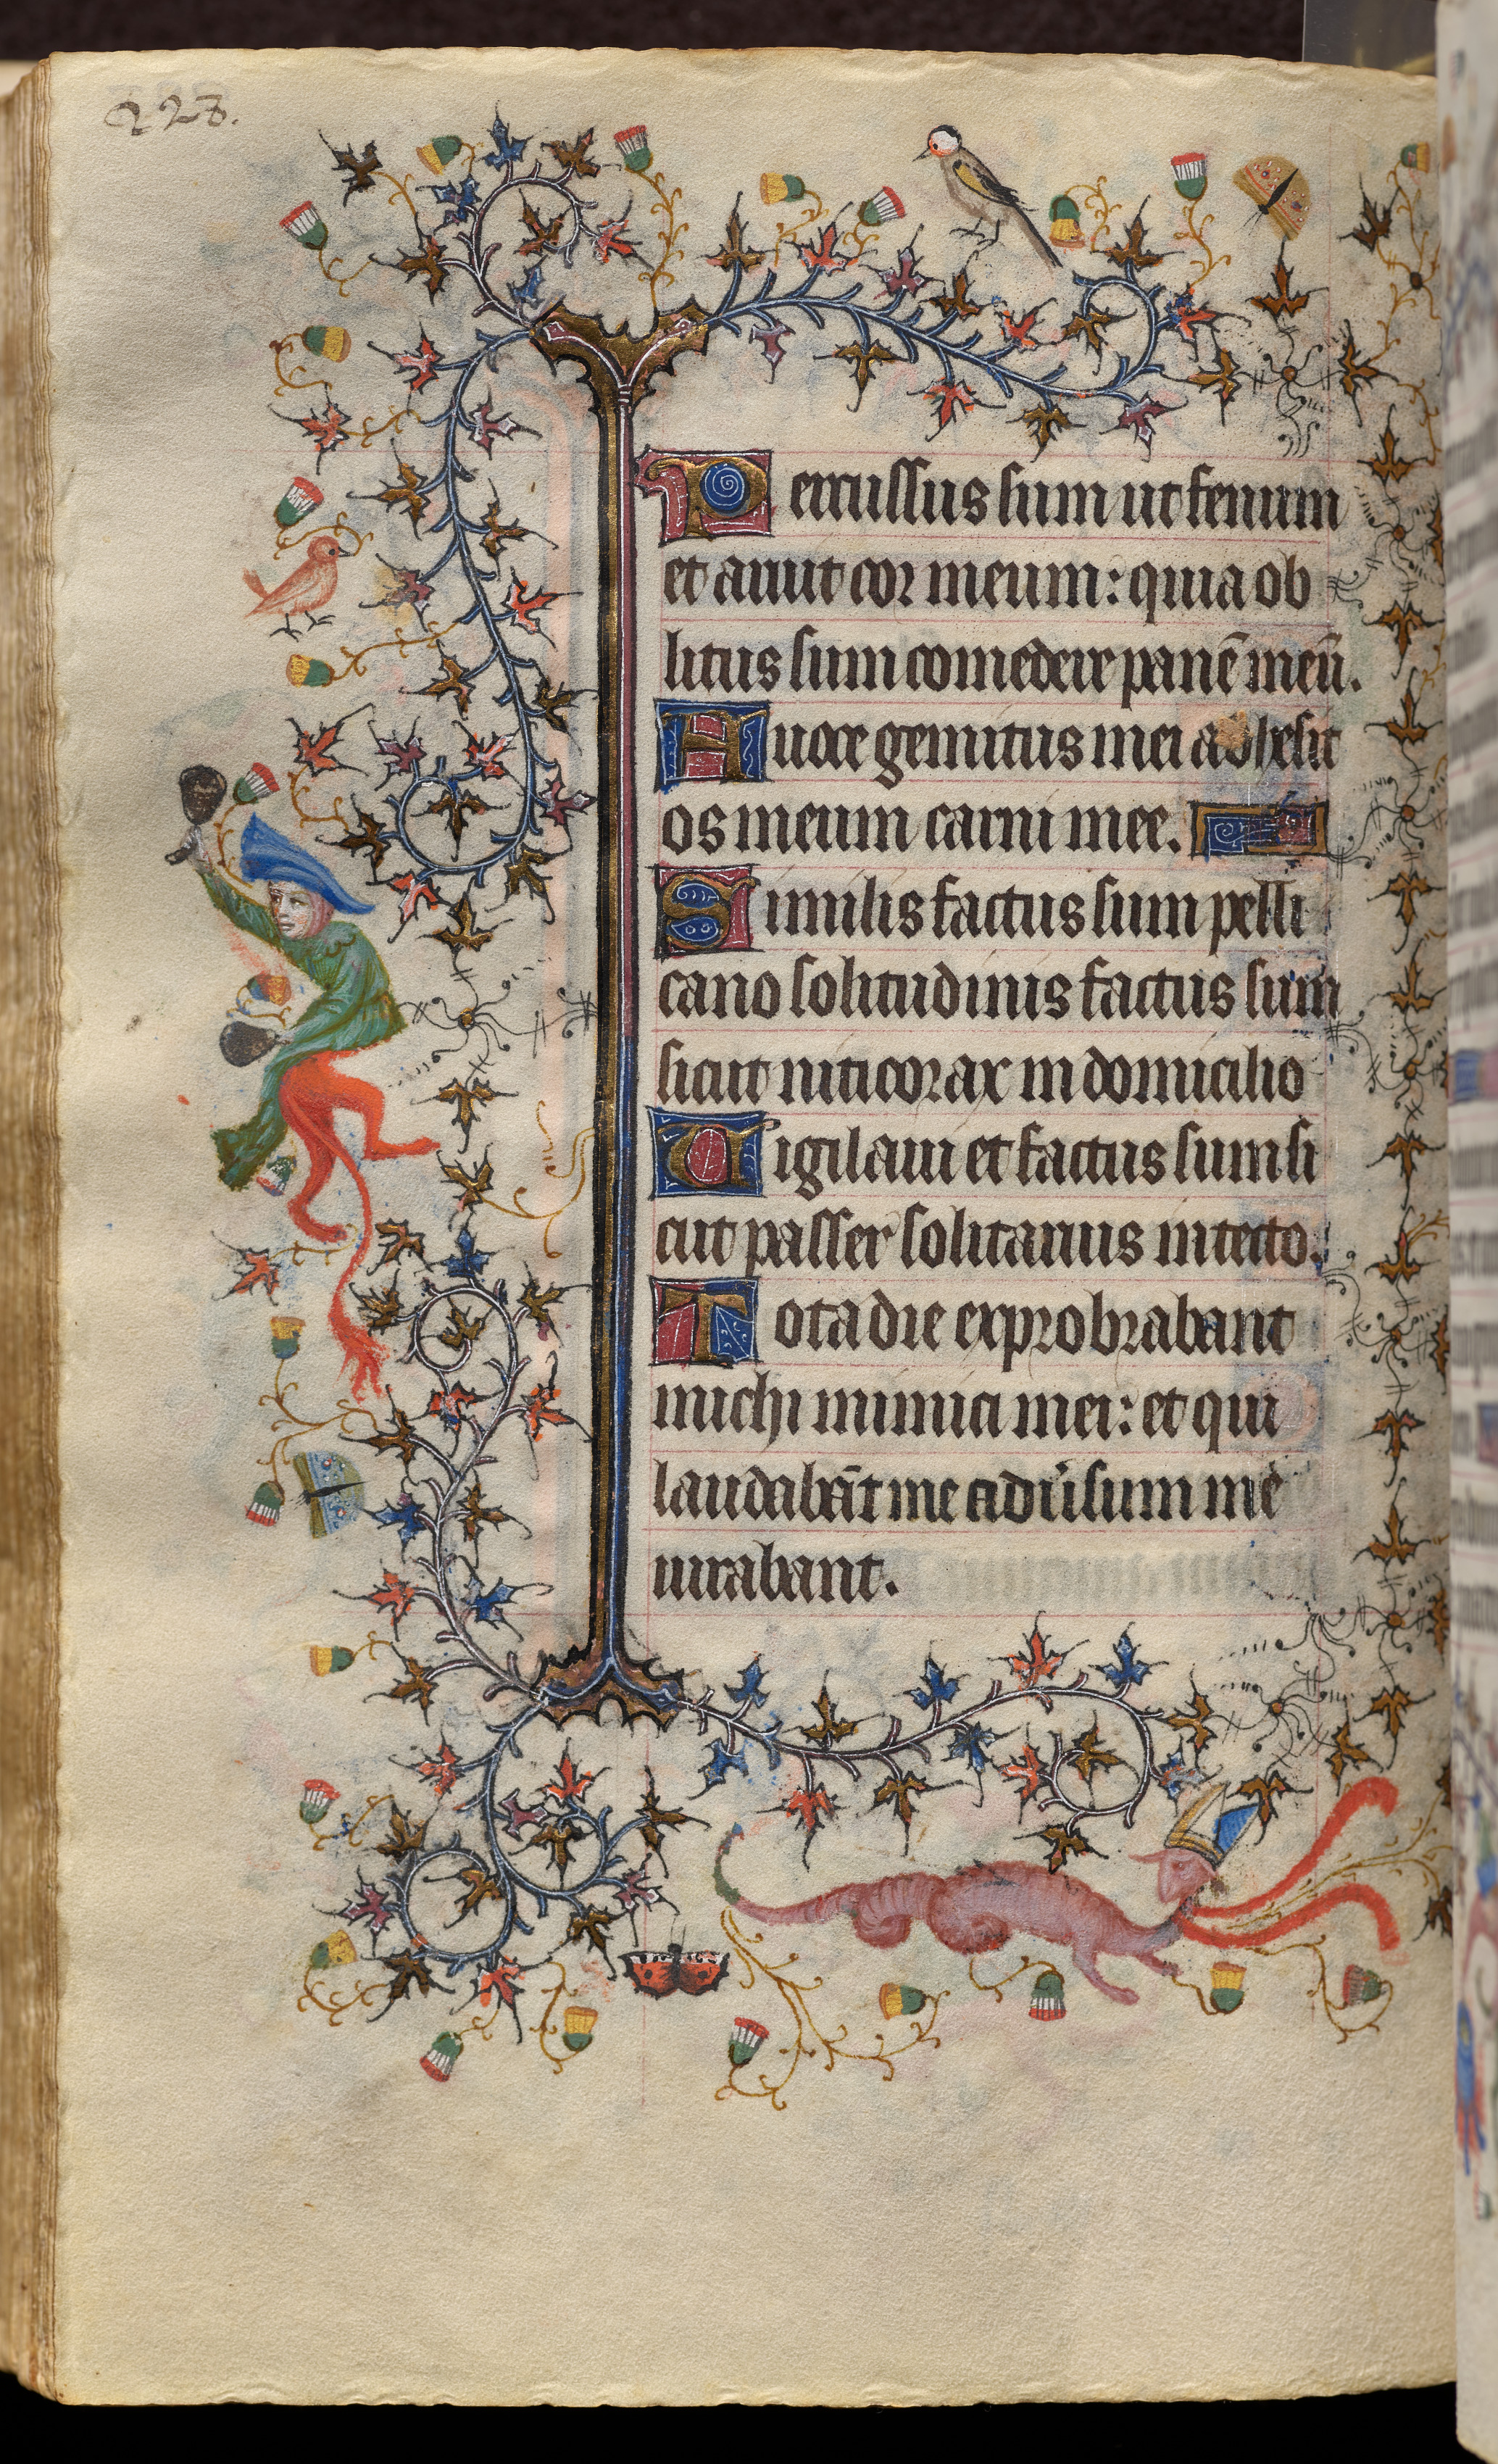 228.
Percussus sum ut fenum
et aruit cor meum: quia ob
litus sum comedere panē meū.
A uoce gemitus mei adhesit
os meum carni mee.
Similis factus sum pelli
cano solitudinis factus sum
sicut niticorax in domicilio
Uigilaui et factus sum si
cut passer solitarius in tecto.
Tota die exprobrabant
michi inimici mei: et qui
laudabāt me adūsum me
iurabant.